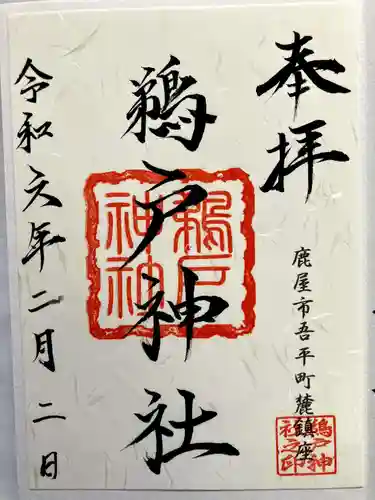 奉拝
鹿屋市吾平町麓鎮座
鵜戸神社
令和六年二月二日
鵜戸神社之印